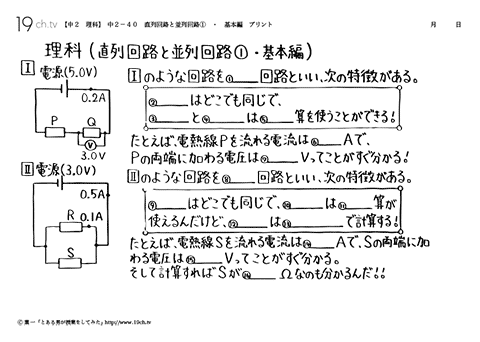 19ch.tv 【中2 理科】 中2-40 直列回路と並列回路① ・ 基本編 プリント 月 日
理科(直列回路と並列回路①・基本編)
Ⅰ 電源(5.0V)
0.2A
P Q
V
3.0V
Ⅰのような回路を①____回路といい、次の特徴がある。
②____はどこでも同じで、
③____と④____は⑤____算を使うことができる!
たとえば、電熱線Pを流れる電流は⑥____Aで、
Pの両端に加わる電圧は⑦____Vってことがすぐ分かる!
Ⅱ 電源(3.0V)
0.5A
R 0.1A
S
Ⅱのような回路を⑧____回路といい、次の特徴がある。
⑨____はどこでも同じで、⑩____は⑪____算が
使えるんだけど、⑫____は⑬________で計算する!
たとえば、電熱線Sを流れる電流は⑭____Aで、Sの両端に加
わる電圧は⑮____Vってことがすぐ分かる。
そして計算すればSが⑯____Ωなのも分かるんだ!!
©葉一「とある男が授業をしてみた」http://www.19ch.tv